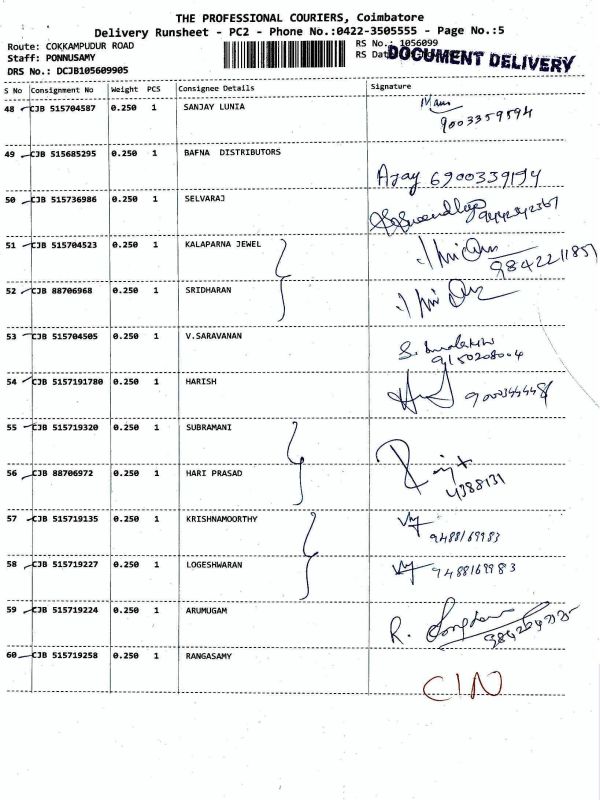 THE PROFESSIONAL COURIERS, Coimbatore
Delivery Runsheet - PC2 - Phone No.:0422-3505555 - Page No.:5
Route: COKKAMPUDUR ROAD
RS No.: 1056099
Staff: PONNUSAMY
RS Dat
DOCUMENT DELIVERY
DRS No.: DCJB105609905
S No Consignment No Weight PCS Consignee Details Signature
48 CJB 515704587 0.250 1 SANJAY LUNIA
9003359594
49 CJB 515685295 0.250 1 BAFNA DISTRIBUTORS
Ajay 6900339194
50 CJB 515736986 0.250 1 SELVARAJ
51 CJB 515704523 0.250 1 KALAPARNA JEWEL
9842211851
52 CJB 88706968 0.250 1 SRIDHARAN
53 CJB 515704505 0.250 1 V.SARAVANAN
9150208004
54 CJB 5157191780 0.250 1 HARISH
55 CJB 515719320 0.250 1 SUBRAMANI
56 CJB 88706972 0.250 1 HARI PRASAD
4388131
57 CJB 515719135 0.250 1 KRISHNAMOORTHY
9488169983
58 CJB 515719227 0.250 1 LOGESHWARAN
9488169983
59 CJB 515719224 0.250 1 ARUMUGAM
R.
60 CJB 515719258 0.250 1 RANGASAMY
CIN